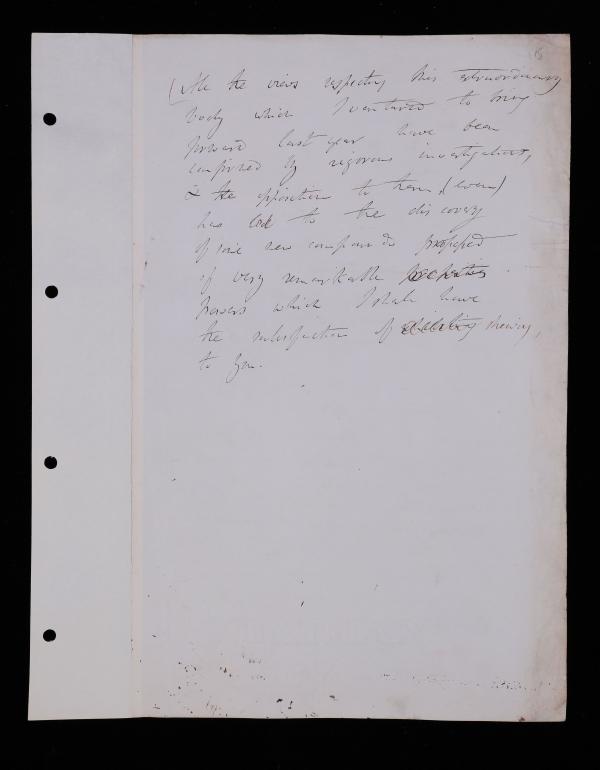 All the views respecting this extraordinary
body which I ventured to bring
forward last year have been
confirmed by rigorous investigations,
& the opposition to them (even)
has led to the discovery
of some new compounds possessed
of very remarkable properties
powers which I shall have
the satisfaction of exhibiting shewing,
to you.